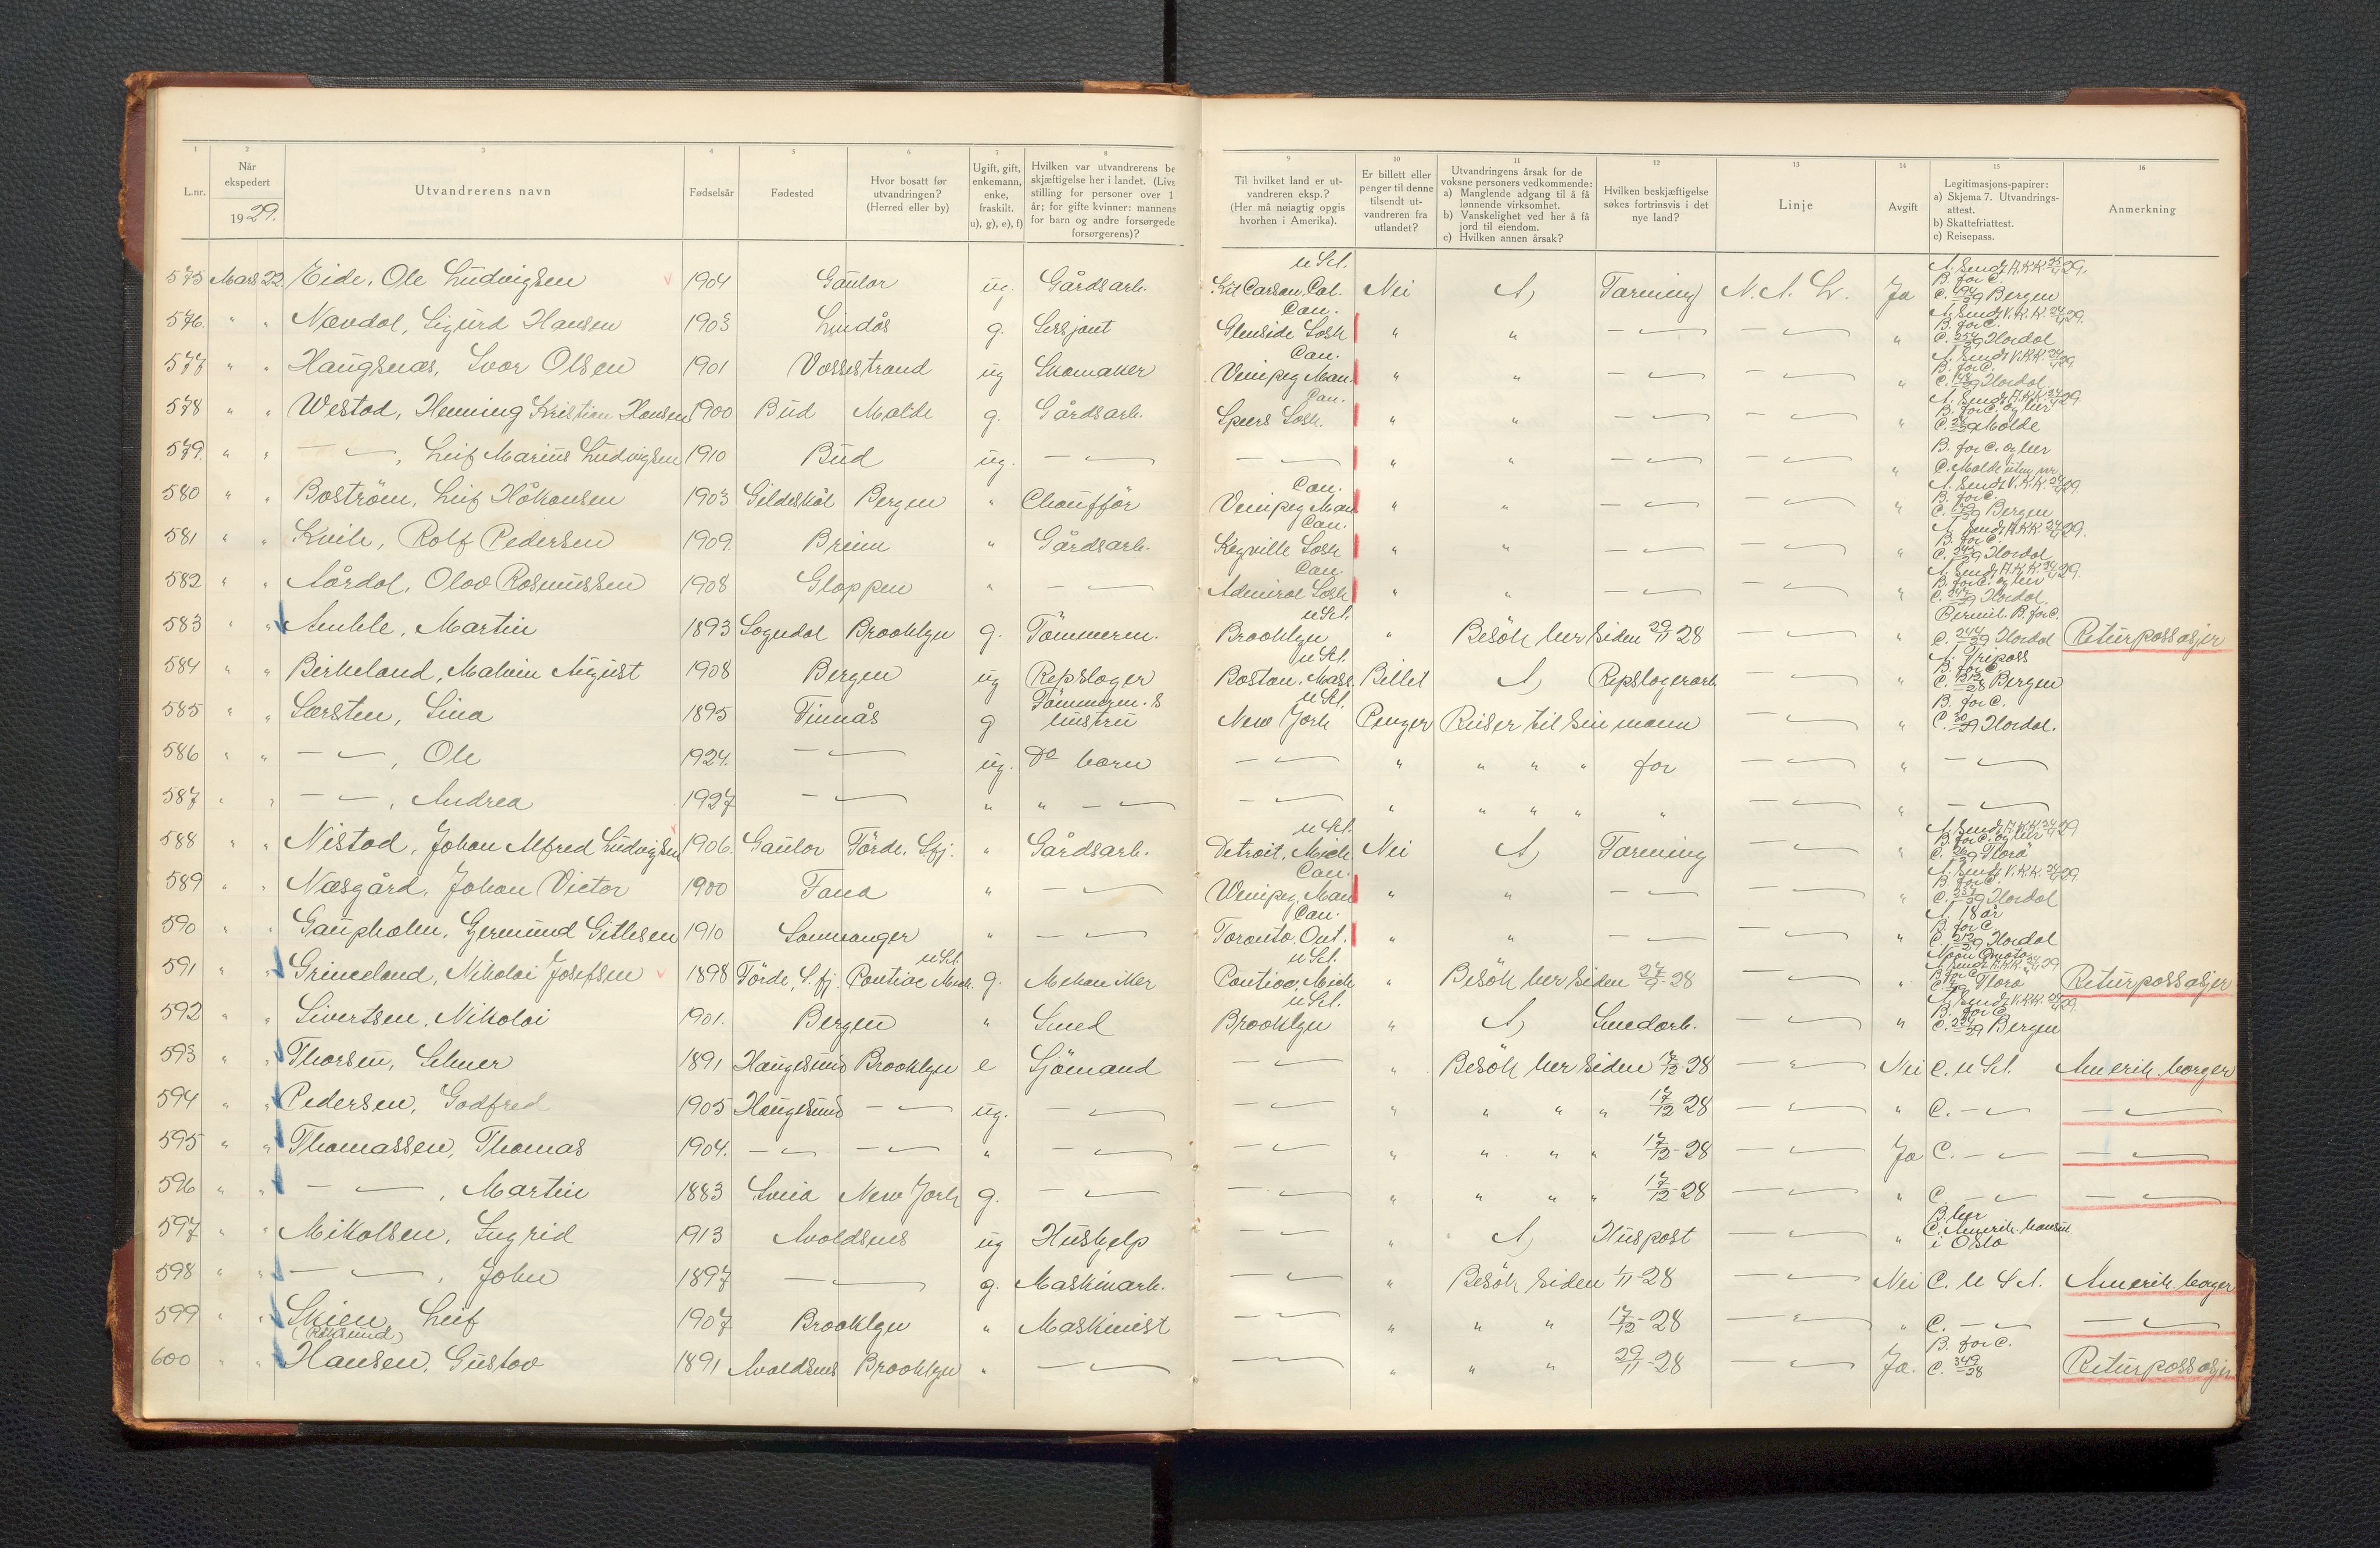 1 2 3 4 5 6 7 8 9 10 11 12 13 14 15 16
L.nr. Når ekspedert 1929. Utvandrerens navn Fødselsår Fødested Hvor bosatt før utvandringen? (Herred eller by) Ugift, gift, enkemann, enke, fraskilt. u), g), e), f) Hvilken var utvandrerens be skjæftigelse her i landet. (Livs stilling for personer over 1 år; for gifte kvinner: mannens for barn og andre forsørgede forsørgerens)? Til hvilket land er utvandreren eksp.? (Her må nøiagtig opgis hvorhen i Amerika). Er billett eller penger til denne tilsendt utvandreren fra utlandet? Utvandringens årsak for de voksne personers vedkommende: a) Manglende adgang til å få lønnende virksomhet. b) Vanskelighet ved her å få jord til eiendom. c) Hvilken annen årsak? Hvilken beskjæftigelse søkes fortrinsvis i det nye land? Linje Avgift Legitimasjons-papirer: a) Skjema 7. Utvandrings-attest. b) Skattefriattest. c) Reisepass. Anmerkning
575 Mars 22. Eide, Ole Ludvigsen 1904 Gaular ug. Gårdsarb. U.S.A. Kit Carson, Col. Nei A) Farming N. A. L. Ja B. for C. C. Bergen
576. " " Nævdal, Sigurd Hansen 1903 Lindås g. Sersjant Can. Glenside Sask " " — — " B. for C. C. Hordal
577 " " Haugsnæs, Ivar Olsen 1901 Vossestrand ug Skomaker Can. Vinipeg Man. " " — — " B. for C. C. Hordal
578 " " Westad, Henning Kristian Hansen 1900 Bud Molde g. Gårdsarb. Can. Speers Sask. " " — — " B. for C. og her C. Molde
579. " " — —, Leif Marius Ludvigsen 1910 Bud ug. — — " " — — " B. for C. og her C. Molde uten nr.
580 " " Boström, Leif Håkonsen 1903 Gildeskål Bergen " Chaufför Can. Vinipeg Man " " — — " B. for C. C. Bergen
581 " " Kvile, Rolf Pedersen 1909. Breim " Gårdsarb. Can. Sask " " — — " B. for C. C. Hordal
582 " " Aårdal, Olav Rasmussen 1908 Gloppen " — Can. Admiral Sask " " — — " B. for C. og her C. Hordal
583 " " Amble, Martin 1893 Sogndal Brooklyn g. Tömmerm. U.S.A. Brooklyn " Besök her siden 29/11 28 — " B. for C. C. 244/29 Hordal Returpassasjer
584 " " Birkeland, Malvin August 1908 Bergen ug Repslager U.S.A. Boston. Mass. Billet A) Repslagerarb. — " A. Tripass B. for C. C. Bergen
585 " " Sørsten, Lina 1895 Finnås g Tömmerm.s hustru U.S.A. New York Penger Reiser til sin mann — " B. for C. C. Hordal.
586 " " — —, Ole 1924. — ug. Do barn — " " " " far — " —
587 " " — —, Andrea 1927 — " " — — " " " " " — " —
588 " " Nistad, Johan Alfred Ludvigsen 1906. Gaular Förde, Sfj. " Gårdsarb. U.S.A. Detroit, Mich Nei A) Farming — " B. for C. og her C. Florö
589 " " Næsgård, Johan Victor 1900 Fana " — Can. Winipeg, Man " " — — " B. for C. C. Hordal
590 " " Gaupholm, Gjermund Gitlesen 1910 Samnanger " — Can. Toronto. Ont. " " — — " A. 18 år B. for C. C. Hordal
591 " " Grimeland, Nikolai Josefsen 1898 Förde, S.fj. U.S.A. Pontiac Mich. g. Mekaniker U.S.A. Pontiac, Mich " Besök her siden 27/9-28 — " B. for C. C. Florö Returpassasjer
592 " " Sivertsen, Nikolai 1901. Bergen " Smed U.S.A. Brooklyn " A) Smedarb. — " B. for C. C. Bergen
593 " " Thorsen, Selmer 1891 Haugesund Brooklyn e Sjömand — " Besök her siden 17/12-28 — Nei C. U.S.A. Amerik. borger
594 " " Pedersen, Godfred 1905 Haugesund — ug. — — " " " " 17/12-28 — " C. — —
595 " " Thomassen, Thomas 1904. — — " — — " " " " 17/12-28 — Ja C. — —
596 " " — —, Martin 1883 Sveia New York g. — — " " " " 17/12-28 — " C. — —
597 " " Mikalsen, Ingrid 1913 Avaldsnes ug Hushjelp — " A) Huspost — " B. her C. Amerik. konsul i Oslo
598 " " — —, John 1897 — g. Maskinarb. — " Besök siden 1/11-28 — Nei C. U.S.A. Amerik. borger
599 " " Skien, Leif 1907 Brooklyn " Maskinist — " " " 17/12-28 — " C. — —
600 " " Hansen, Gustav 1891 Avaldsnes Brooklyn " — — " " " 29/11-28 — Ja. B. for C. C. 349/28 Returpassasjer